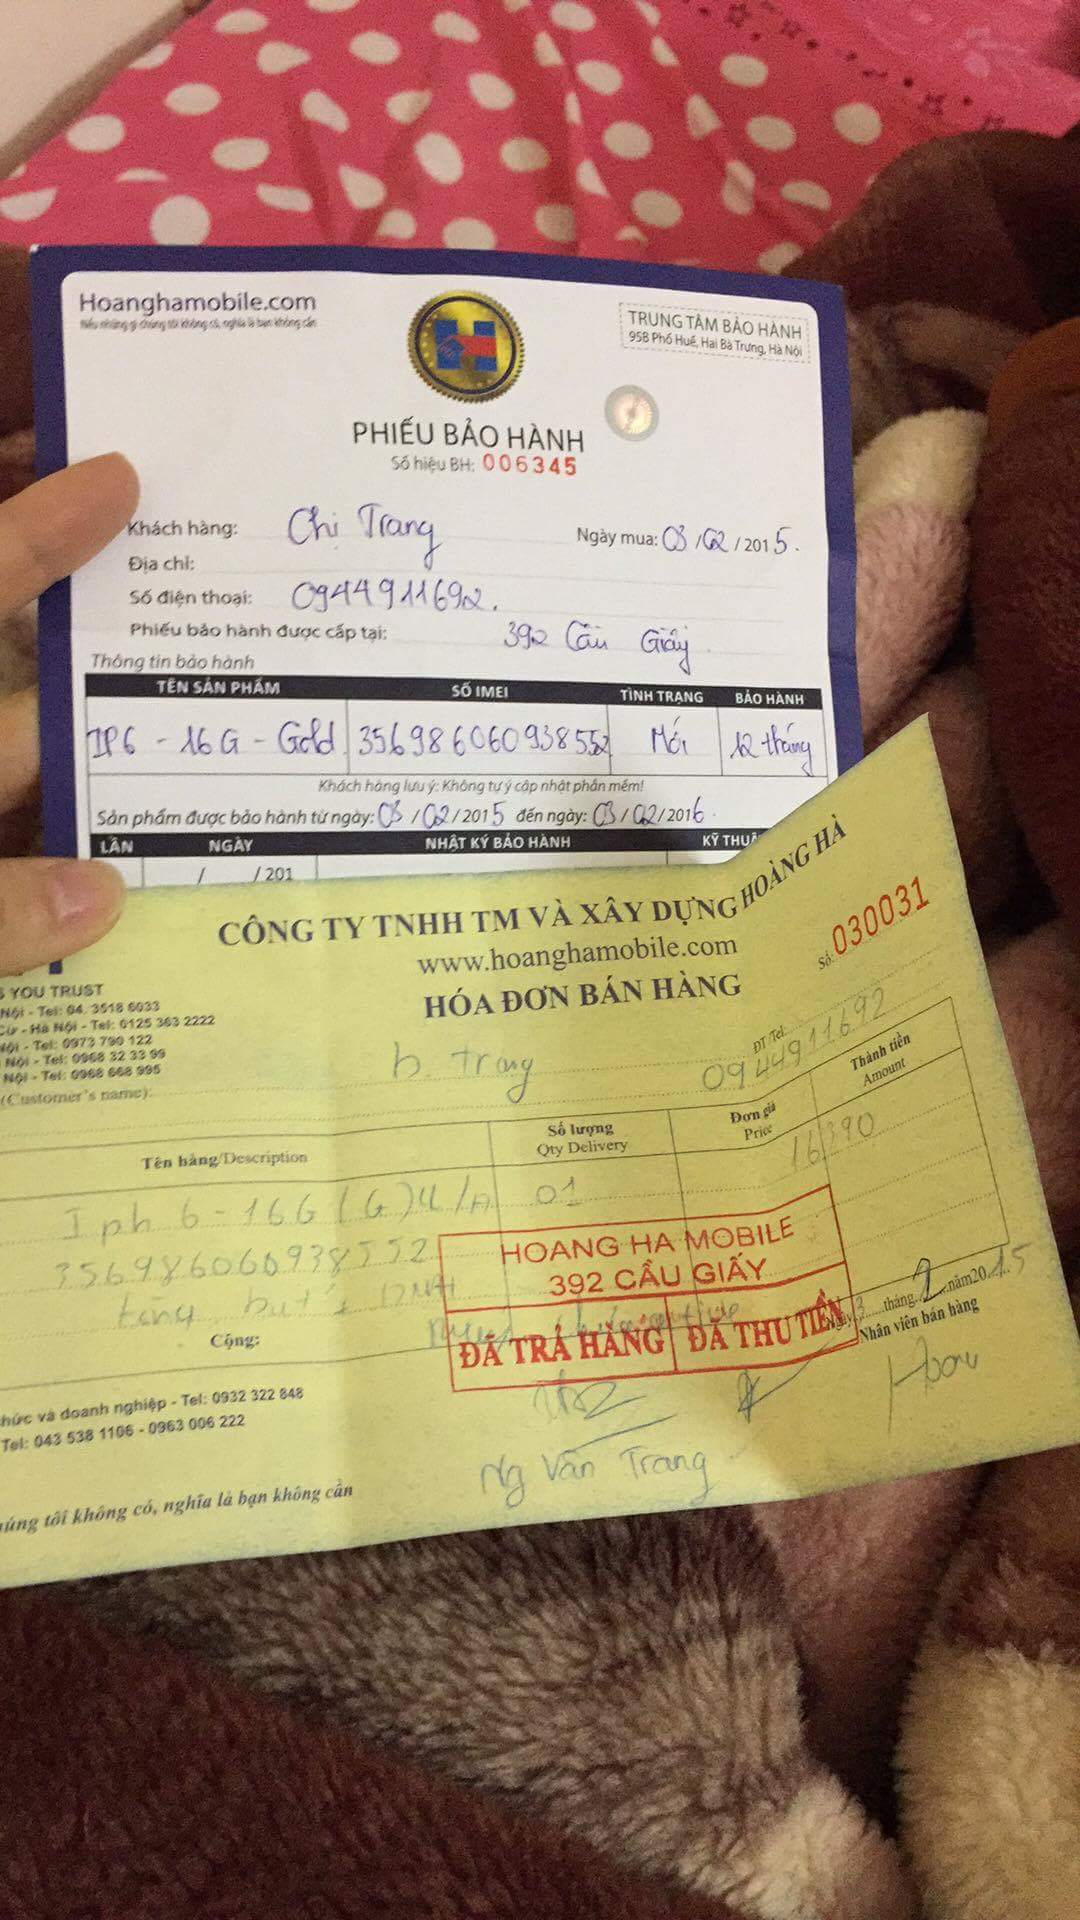 Hoanghamobile.com
Nếu những gì chúng tôi không có, nghĩa là bạn không cần
TRUNG TÂM BẢO HÀNH
95B Phố Huế, Hai Bà Trưng, Hà Nội
PHIẾU BẢO HÀNH
Số hiệu BH: 006345
Khách hàng: Chị Trang
Ngày mua: 03/02/2015.
Địa chỉ:
Số điện thoại: 0944911692.
Phiếu bảo hành được cấp tại: 392 Cầu Giấy
Thông tin bảo hành
TÊN SẢN PHẨM SỐ IMEI TÌNH TRẠNG BẢO HÀNH
IP6 - 16G - Gold 356986060938552 Mới 12 tháng
Khách hàng lưu ý: Không tự ý cập nhật phần mềm!
Sản phẩm được bảo hành từ ngày: 03/02/2015 đến ngày: 03/02/2016.
LẦN NGÀY NHẬT KÝ BẢO HÀNH KỸ THUẬ
/ /201
CÔNG TY TNHH TM VÀ XÂY DỰNG HOÀNG HÀ
www.hoanghamobile.com
Số: 030031
HÓA ĐƠN BÁN HÀNG
S YOU TRUST
Nội - Tel: 04. 3518 6033
Cừ - Hà Nội - Tel: 0125 363 2222
Nội - Tel: 0973 790 122
Nội - Tel: 0968 32 33 99
Nội - Tel: 0968 668 995
(Customer's name): b. Trang
ĐT/Tel: 0944911692
Tên hàng/Description Số lượng Đơn giá Thành tiền
Qty Delivery Price Amount
Iph 6 - 16G (G) LL/A 01 16390
356986060938552
tặng bút
Cộng:
HOANG HA MOBILE
392 CẦU GIẤY
ĐÃ TRẢ HÀNG ĐÃ THU TIỀN
Ngày 3 tháng 2 năm 2015
Nhân viên bán hàng
Hoan
Ng Vân Trang
hức và doanh nghiệp - Tel: 0932 322 848
Tel: 043 538 1106 - 0963 006 222
húng tôi không có, nghĩa là bạn không cần